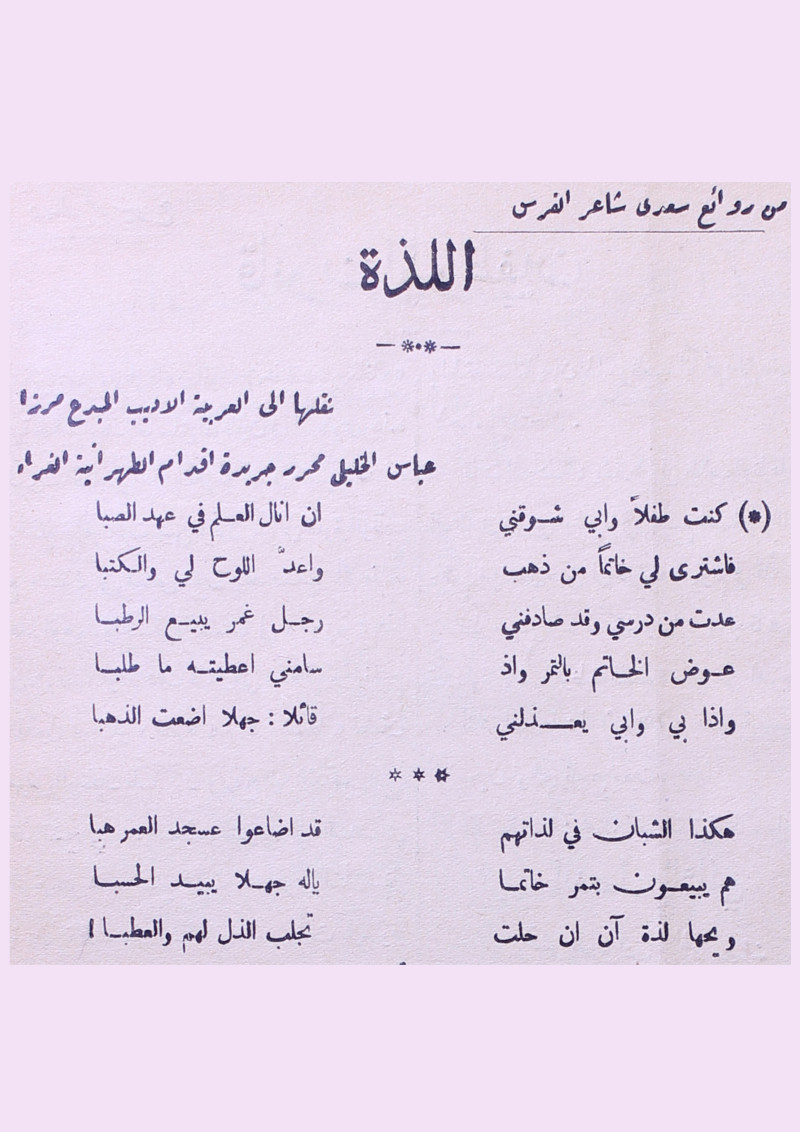 من روائع سعدى شاعر الفرس
اللذة
نقلها الى العربية الاديب المبدع مرزا
عباس الخليلي محرر جريدة اقدام الطهرانية الغراء
(*) كنت طفلاً وابي شوقني ان انال العلم في عهد الصبا
فاشترى لي خاتماً من ذهب واعدَّ اللوح لي والكتبا
عدت من درسي وقد صادفني رجل غمر يبيع الرطبا
عوض الخاتم بالتمر واذ سامني اعطيته ما طلبا
واذا بي وابي يعذلني قائلا : جهلا اضعت الذهبا
* * *
هكذا الشبان في لذاتهم قد اضاعوا عسجد العمر هبا
هم يبيعون بتمر خاتما ياله جهلا يبيد الحسبا
ويحها لذة آن ان حلت تجلب الذل لهم والعطبا !